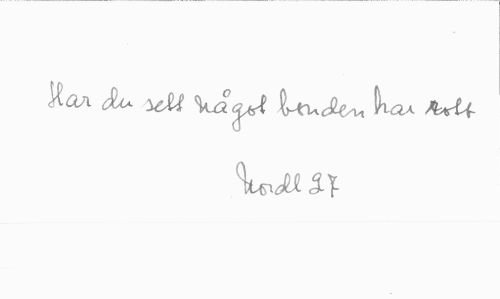 Har du sett något bonden har rott
Nordl 27